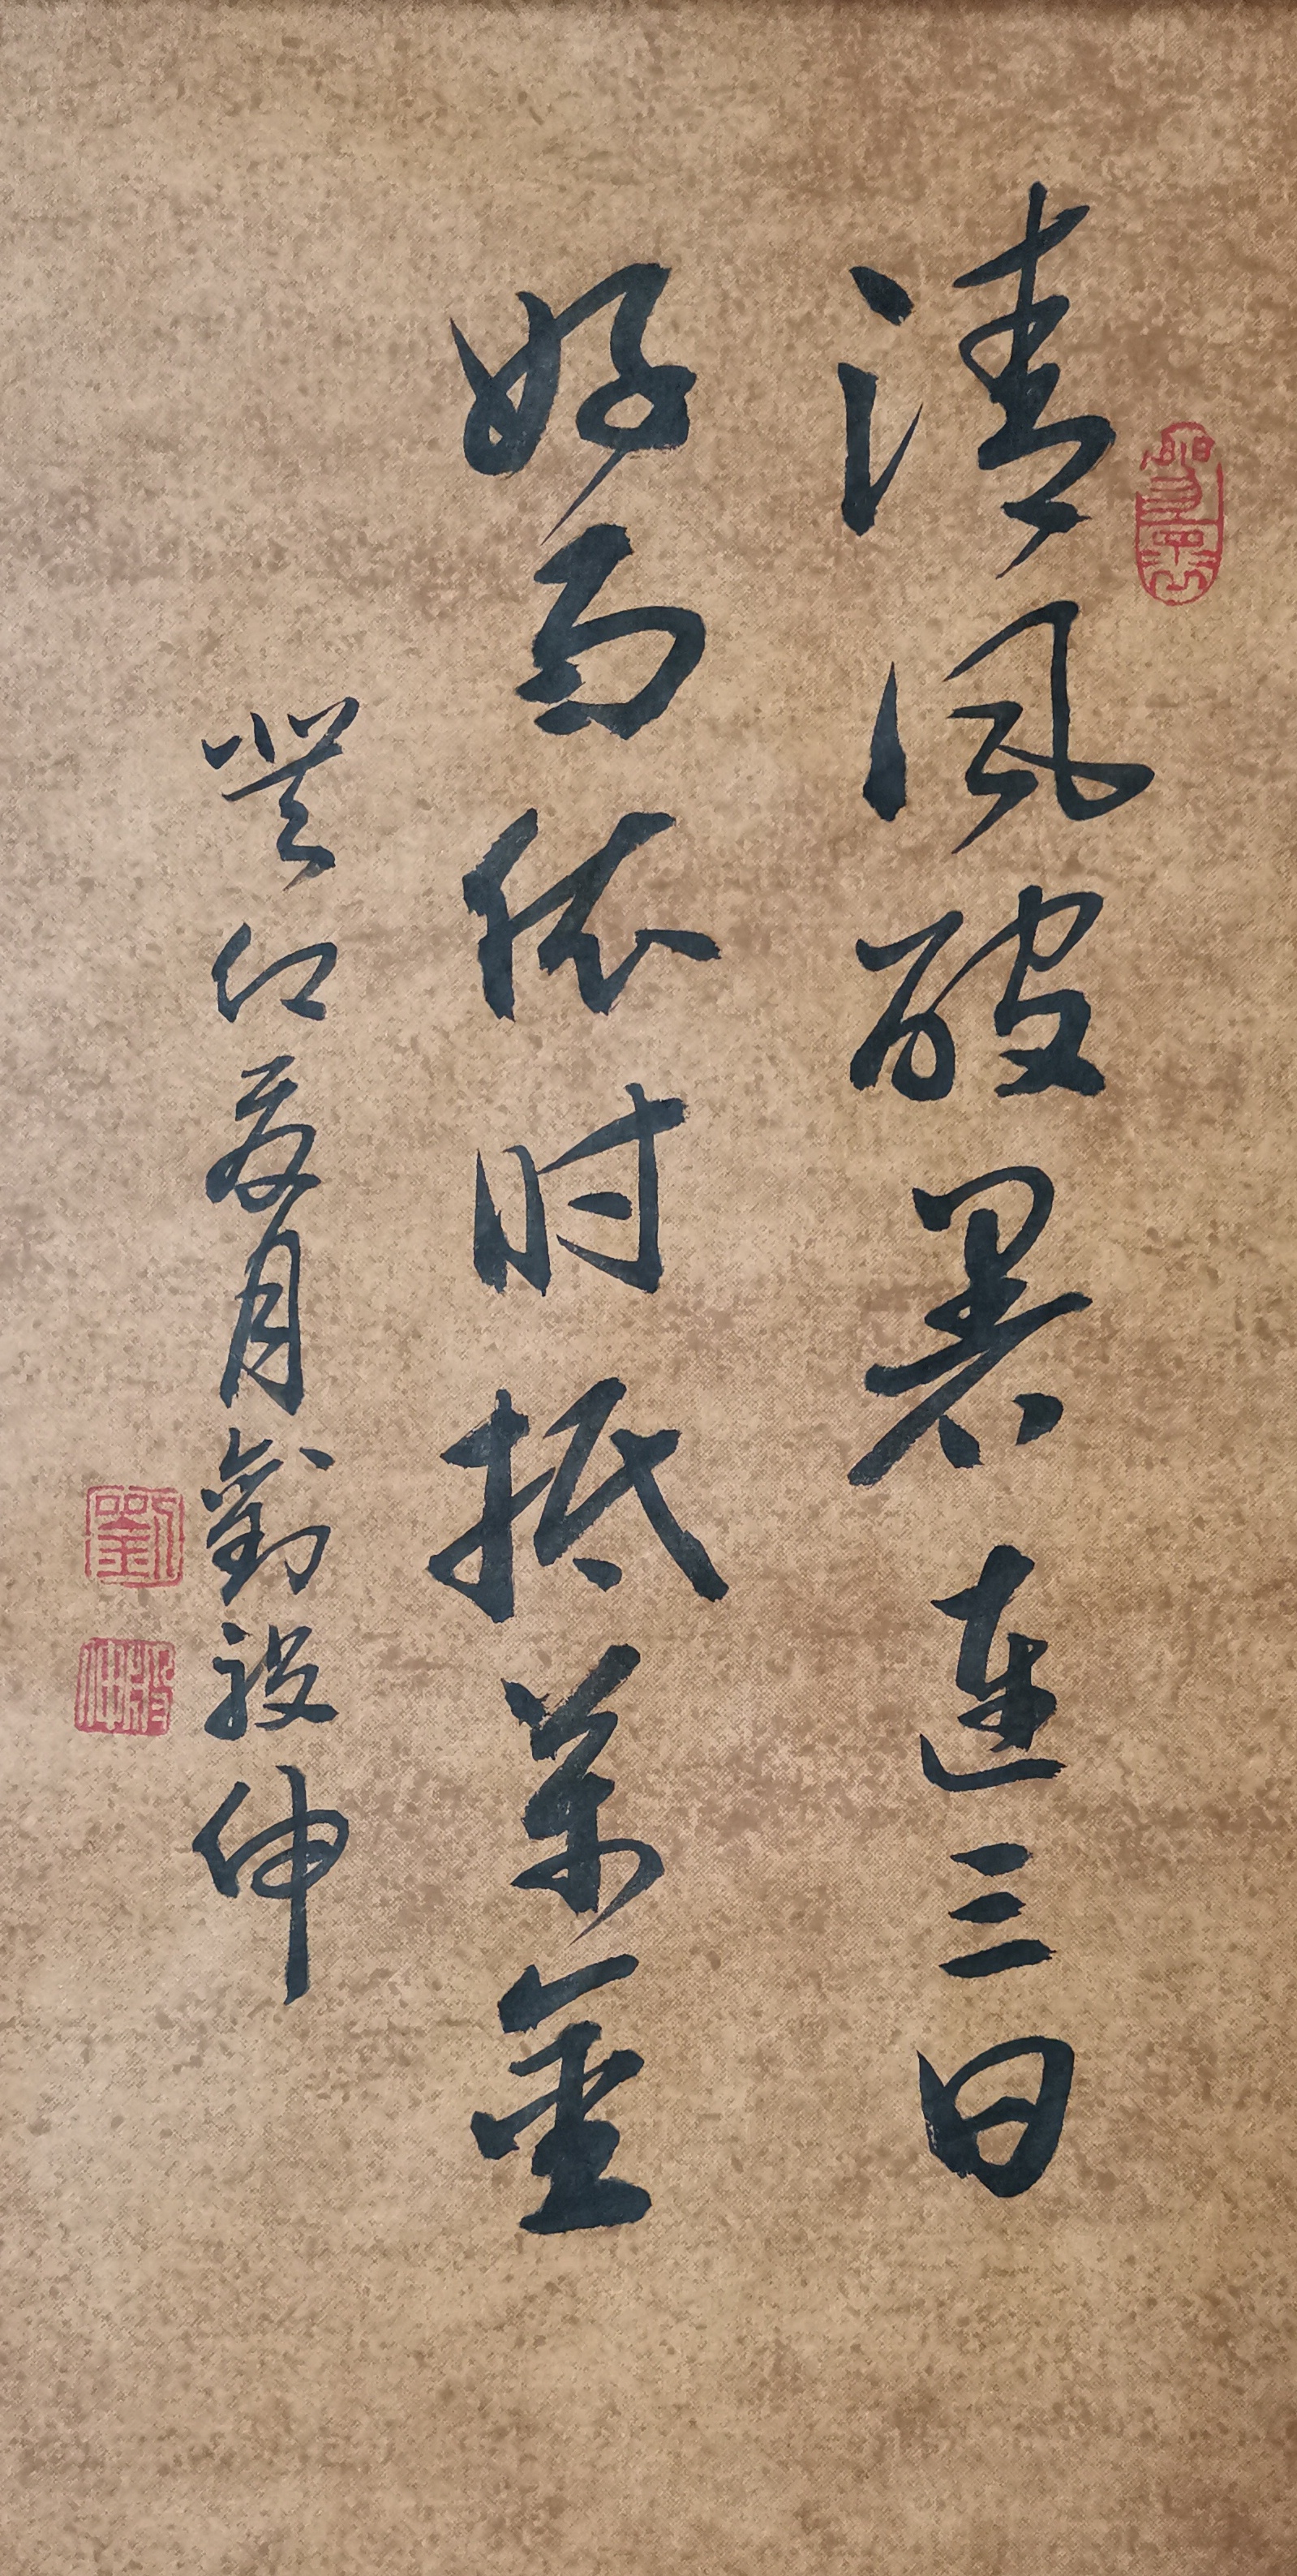 清风破暑连三日
好雨依时抵万金
癸卯夏月劉祋伸
劉